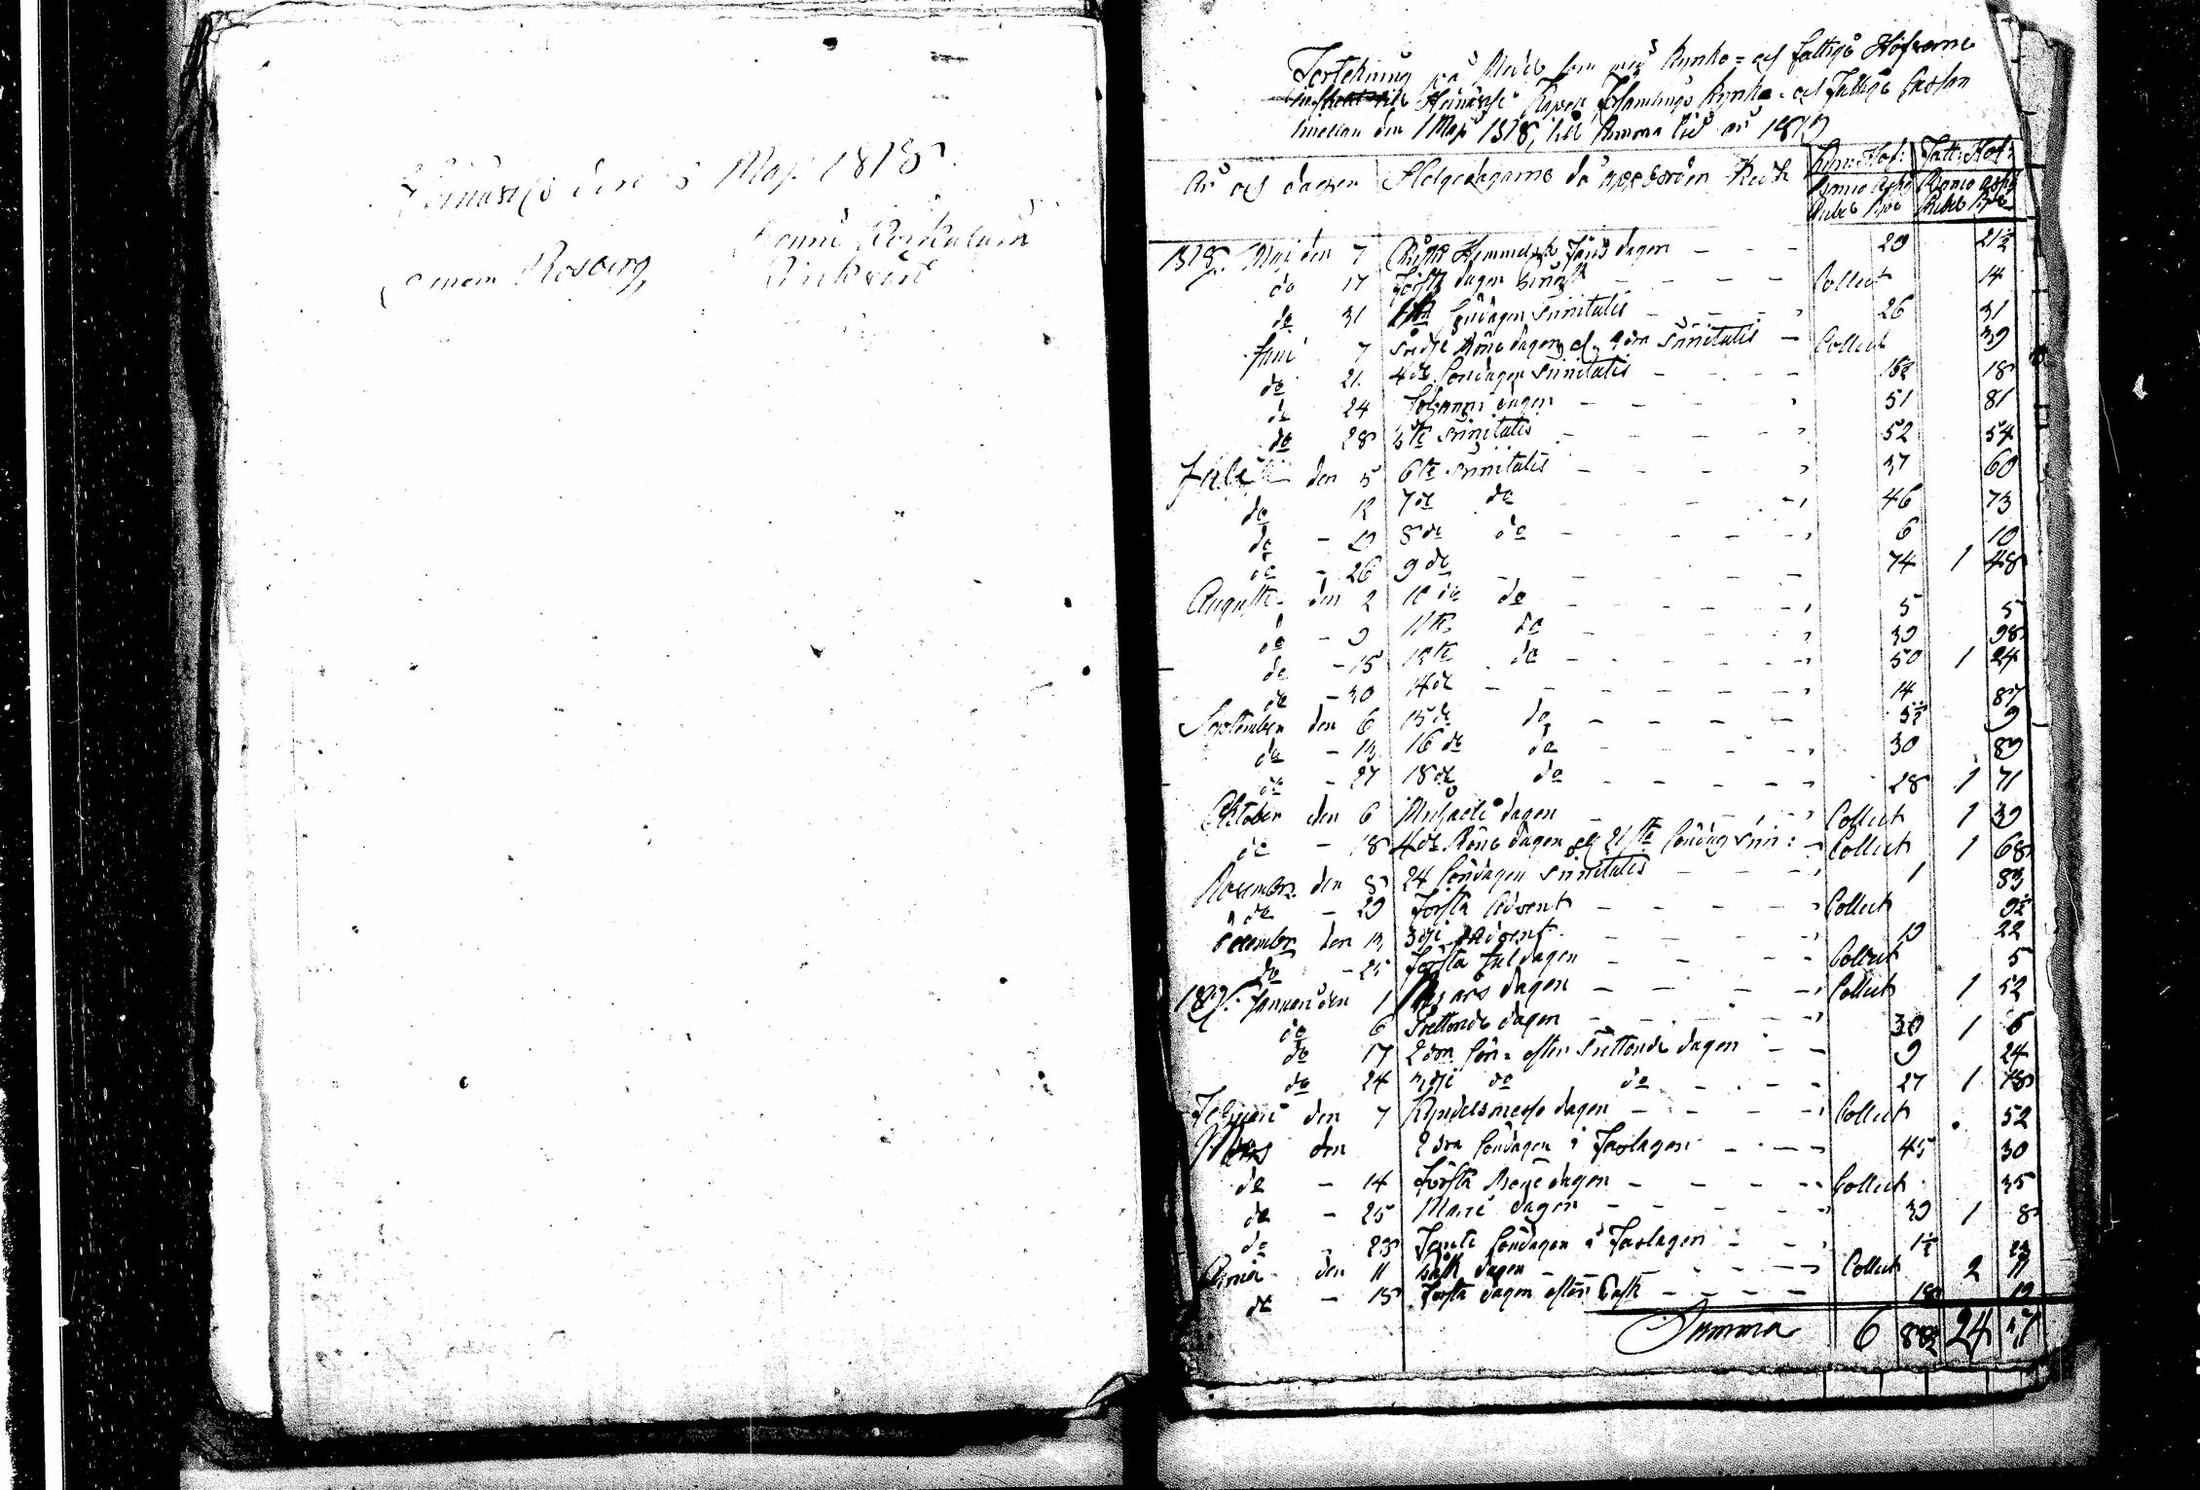 den 5 Maj 1818.
Rosberg,
Förtekning på Medel som med Kyrko- och fattiga Håfvarne
Kapell Församlings Kyrko- och Fattige Cassan
emellan den 1 Maj 1818, till samma tid år 1819
År och dagen Helgedagarne då uppbörden skedt Kyrk: Håf: Fatt: Håf:
Banco Banco
Rubel Kop Rubel
1818. Maj den 7 Christi Himmelsfärds dagen 29 21½
do 17 Första dagen Pingst Collect 14
do 31 Söndagen Trinitatis 26 31
Juni 7 Tredje Böne dagen och 2dra Trinitatis Collect 39
do 21. 4de Söndagen Trinitatis 16½ 18
do 24 Johannis dagen 51 81
do 28 5te Trinitatis 52 54
Juli den 5 6te Trinitatis 37 60
do 12 7de do 46 73
do - 19 8de do 6 10
do - 26 9de 74 1 48
Augusti den 2 10de do 5 5
do - 9 11te do 39 98
do - 15 12te do 50 1 24
do - 30 14de 14 87
September den 6 15de do 3½ 9
do - 13 16de do 30 89
do - 27 18de do 28 1 71
Oktober den 6 Michaeli dagen Collect 1 39
do - 18 4de Böne dagen och 21ste Söndag Trin: Collect 1 68
November den 8 24 Söndagen Trinitatis 1 83
do - 29 Första Advent Collect 9½
December den 13 3dje Advent 19 22
do - 25 Första Juldagen Collect 5
1819. Januari den 1 Nyårs dagen Collect 1 52
do 6 Trettonde dagen 30 1 6
do 17 2dra Sön- efter Trettonde dagen 9 24
do 24 3dje do do 27 1 18
Februari den 7 Kyndelsmesso dagen Collect 52
Mars den 2dra Söndagen i Fastagen 45 30
do - 14 Första Böne dagen Collect 35
do - 25 Marie dagen 39 1 8
do 28 Femte Söndagen i Fastagen 1½ 23
den 11 Påsk dagen Collect 2 11
do - 18 Första dagen efter Påsk 18 19
Summa 6 24